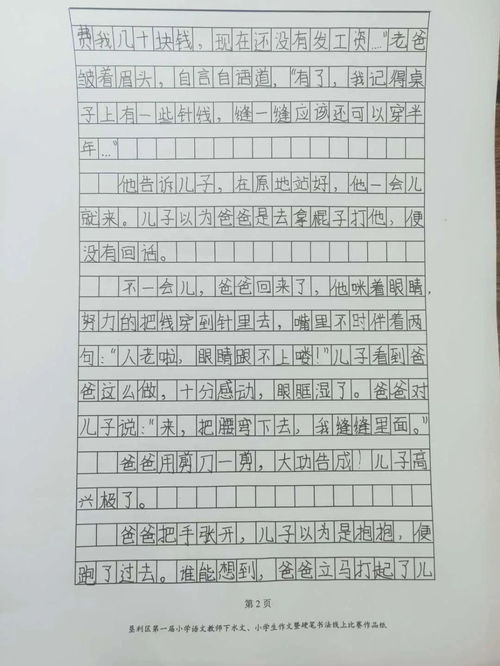 费我几十块钱，现在还没有发工资…"老爸
皱着眉头，自言自语道，"有了，我记得桌
子上有一些针线，缝一缝应该还可以穿半
年…"
他告诉儿子，在原地站好，他一会儿
就来。儿子以为爸爸是去拿棍子打他，便
没有回话。
不一会儿，爸爸回来了，他眯着眼睛，
努力的把线穿到针里去，嘴里不时伴着两
句："人老啦，眼睛跟不上喽！"儿子看到爸
爸这么做，十分感动，眼眶湿了。爸爸对
儿子说："来，把腰弯下去，我缝缝里面。"
爸爸用剪刀一剪，大功告成！儿子高
兴极了。
爸爸把手张开，儿子以为是抱抱，便
跑了过去。谁能想到，爸爸立马打起了儿
第 2 页
垦利区第一届小学语文教师下水文、小学生作文暨硬笔书法线上比赛作品纸